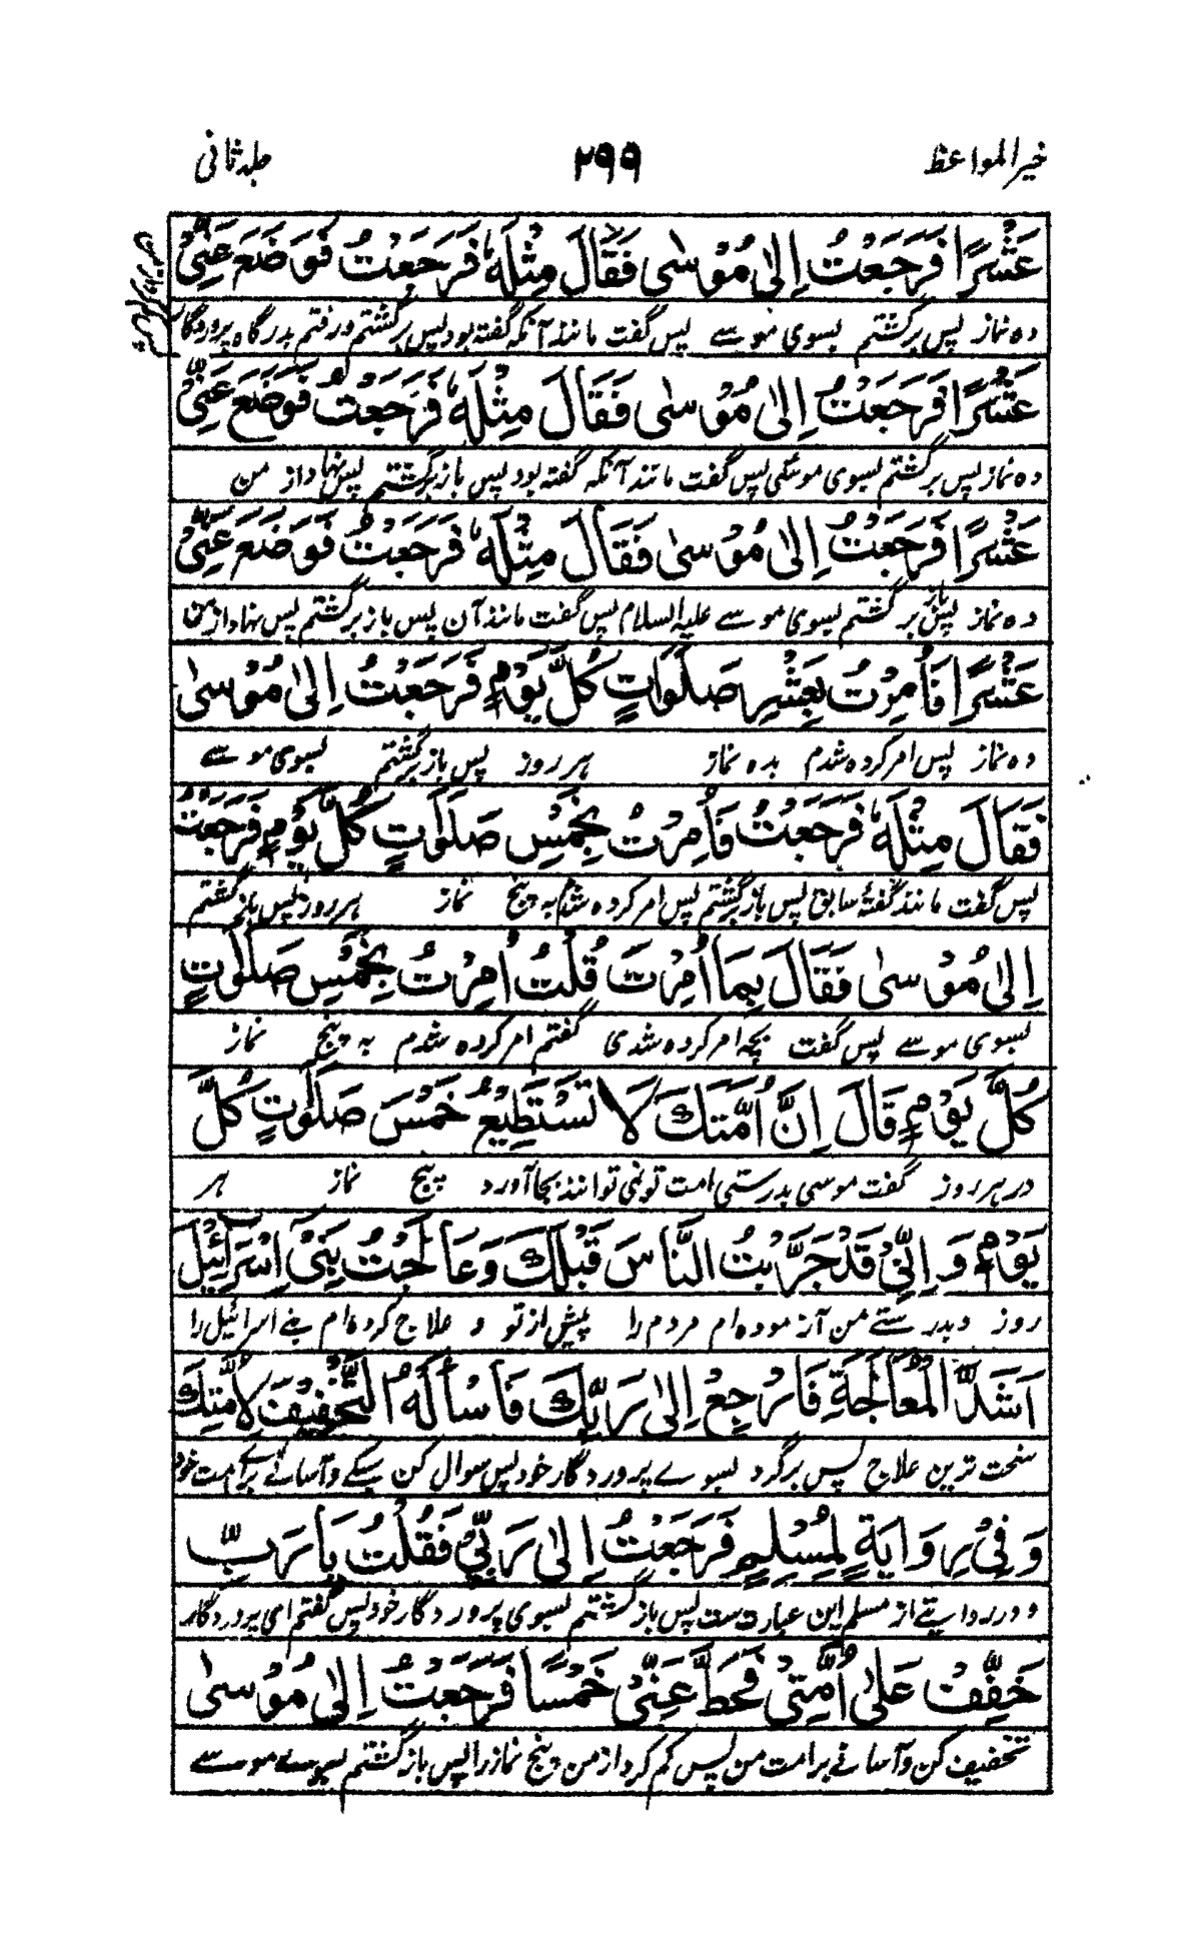 خیر المواعظ ۲۹۹ جلد ثانی
عَشْرًا فَرَجَعْتُ اِلٰى مُوْسٰى فَقَالَ مِثْلَهٗ فَرَجَعْتُ فَوَضَعَ عَنِّىْ
ده نماز پس برگشتم بسوی موسے پس گفت مانند آنکه گفته بود پس برگشتم و رفتم بدرگاه پروردگار
عَشْرًا فَرَجَعْتُ اِلٰى مُوْسٰى فَقَالَ مِثْلَهٗ فَرَجَعْتُ فَوَضَعَ عَنِّىْ
ده نماز پس برگشتم بسوی موسٰی پس گفت مانند آنکه گفته بود پس باز برگشتم پس نهاد از من
عَشْرًا فَرَجَعْتُ اِلٰى مُوْسٰى فَقَالَ مِثْلَهٗ فَرَجَعْتُ فَوَضَعَ عَنِّىْ
ده نماز پس باز برگشتم بسوی موسے علیه السلام پس گفت مانند آن پس باز برگشتم پس نهاد از من
عَشْرًا فَاُمِرْتُ بِعَشْرِ صَلَوَاتٍ كُلَّ يَوْمٍ فَرَجَعْتُ اِلٰى مُوْسٰى
ده نماز پس امر کرده شدم بده نماز هر روز پس باز برگشتم بسوی موسے
فَقَالَ مِثْلَهٗ فَرَجَعْتُ فَاُمِرْتُ بِخَمْسِ صَلَوَاتٍ كُلَّ يَوْمٍ فَرَجَعْتُ
پس گفت مانند گفتهٔ سابق پس باز برگشتم پس امر کرده شدم به پنج نماز هر روز پس باز گشتم
اِلٰى مُوْسٰى فَقَالَ بِمَا اُمِرْتَ قُلْتُ اُمِرْتُ بِخَمْسِ صَلَوَاتٍ
بسوی موسے پس گفت بچه امر کرده شدی گفتم امر کرده شدم به پنج نماز
كُلَّ يَوْمٍ قَالَ اِنَّ اُمَّتَكَ لَا تَسْتَطِيْعُ خَمْسَ صَلَوَاتٍ كُلَّ
در هر روز گفت موسی بدرستی امت تو نمی توانند بجا آورد پنج نماز هر
يَوْمٍ وَ اِنِّىْ قَدْ جَرَّبْتُ النَّاسَ قَبْلَكَ وَعَالَجْتُ بَنِىْ اِسْرَائِيْلَ
روز و بدرستے من آزموده ام مردم را پیش از تو و علاج کرده ام بنے اسرائیل را
اَشَدَّ الْمُعَالَجَةِ فَارْجِعْ اِلٰى رَبِّكَ فَاسْأَلْهُ التَّخْفِيْفَ لِاُمَّتِكَ
سخت ترین علاج پس برگرد بسوے پروردگار خود پس سوال کن سبکے و آسانے برای امت خود
وَ فِىْ رِوَايَةٍ لِمُسْلِمٍ فَرَجَعْتُ اِلٰى رَبِّىْ فَقُلْتُ يَا رَبِّ
و در روایتے از مسلم این عبارت ست پس باز گشتم بسوی پروردگار خود پس گفتم ای پروردگار
خَفِّفْ عَلٰى اُمَّتِىْ فَحَطَّ عَنِّىْ خَمْسًا فَرَجَعْتُ اِلٰى مُوْسٰى
تخفیف کن و آسانے بر امت من پس کم کرد از من پنج نماز را پس باز گشتم بسوے موسے